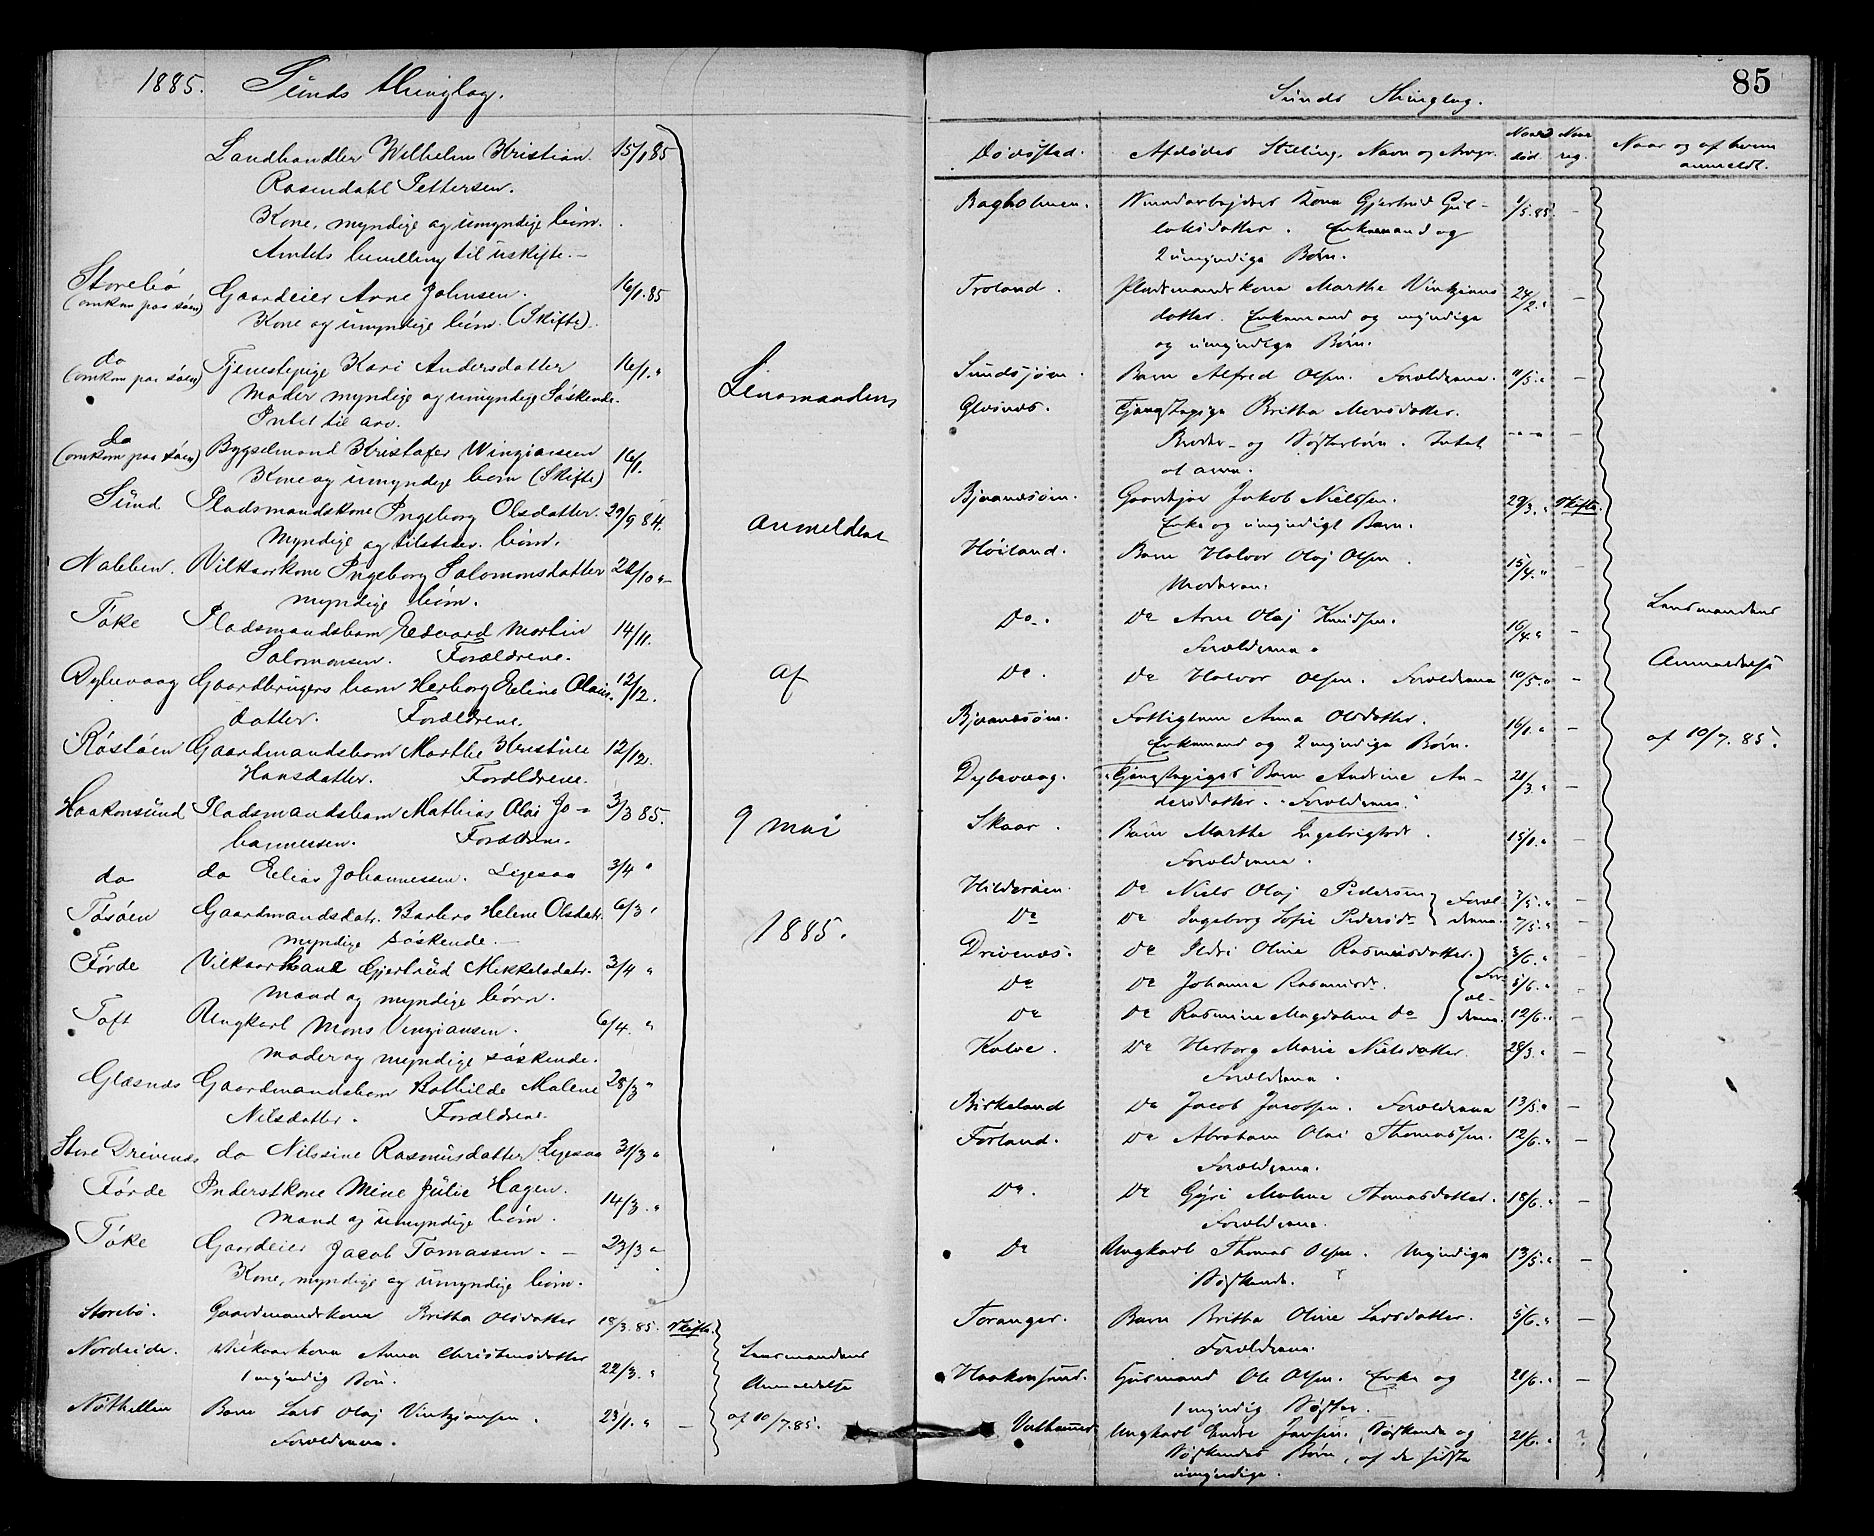 1885. Sunds Thinglag.
Landhandler Wilhelm Kristian 15/1 85
Rosendahl Pettersen.
Kone, myndige og umyndige børn.
Amtets bevilling til uskifte. —
Storebø Gaardeier Arne Johnsen. 16/1.85
(omkom paa søen) Kone og umyndige børn. (Skifte).
do Tjenestepige Kari Andersdatter 16/1. "
(omkom paa søen) Moder myndige og umyndige Søskende.
Intet til arv.
do Bygselmand Kristofer Wingiansen 16/1.
(omkom paa søen) Kone og umyndige børn (Skifte)
Sund Pladsmandskone Ingeborg Olsdatter. 29/9 84.
Myndige og tilsteder. børn.
Nabben. Vilkaarkone Ingeborg Salomonsdatter 22/10 "
myndige børn.
Tøke Pladsmandsbarn Edvard Martin 14/11.
Salomonsen. Forældrene.
Dybevaag Gaardbrugers barn Herborg Eeline Olai 12/12.
datter. Forældrene.
Røstøen Gaardmandsbarn Marthe Kristine 12/12.
Hansdatter. Forældrene.
Haakonsund Pladsmandsbarn Mathias Olai Jo- 3/3 85.
hannessen. Forældrene.
do do Elias Johannessen. Ligesaa 3/4 "
Tøsøen Gaardmandsdatr. Barbro Helene Olsdatr. 6/3 "
myndige søskende. —
Førde Vilkaarkone Gjertrud Mikkelsdatr. 3/4 "
mand og myndige børn.
Toft Ungkarl Mons Vingiansen. 6/4. "
moder og myndige søskende.
Glæsnæs Gaardmandsbarn Bothilde Malene 28/3 "
Nilsdatter. Forældrene
Store Drivenes do Nilssine Rasmusdatter Ligesaa 31/3 "
Førde Inderstkone Mine Julie Hagen. 14/3. "
mand og umyndige børn.
Tøke Gaardeier Jacob Tomassen. — 23/3 "
Kone, myndige og umyndige børn.
Storebø. Gaardmandskone Britha Olsdatter 18/3. 85. Skifte.
Nordeide. Vilkaarkone Anna Christensdatter 22/3. "
1 myndig Søn.
Nøthellen Barn Lars Olaj Vintzjansen. 23/1. " —
Forældrene.
Lensmandens
anmeldelse
af
9 mai
1885.
Lensmandens
Anmeldelse
af 10/7.85.
85
Sunds Thinglag.
Dødssted. Afdødes Stilling, Navn og Arvgr. Naar død. Naar reg. Naar og af hvem anmeldt.
Bagholmen. Mundarbejders Kone Gjertrud Gul- 1/5.85. —
laksdatter. Enkemand og
2 umyndige Børn.
Troland. Pladsmandskone Marthe Vintzjans 24/2. " —
datter. Enkemand og myndige
og umyndige Børn.
Sundsjøen. Barn Alfred Olsen. Forældrene. 11/5. " —
Glæsnæs. Tjenestepige Britha Monsdatter. - - - —
Broder- og Søsterbørn. Intet
at arve.
Bjaanæsøen. Gaardejer Jakob Nielssen. 29/3. " Skifte.
Enke og umyndigt Barn.
Høiland. Barn Halvor Olaj Olsen. 15/4. " —
Moderen.
Do. Do Arne Olaj Knudsen. 16/4. " —
Forældrene.
Do. Do Halvor Olsen. Forældrene 10/5. " —
Bjaanæsøen. Fattiglem Anna Olsdatter. 16/1. " —
Enkemand og 2 myndige Børn.
Dybevaag. Tjenestepiges Barn Andrine An- 21/3. " —
dersdatter. "Forældrene."
Skaar. Barn Marthe Ingebrigtsdr. 15/1. " —
Forældrene.
Hildesøen. Do Niels Olaj Pedersen } Foræl- 3/5. " —
Do Do Ingeborg Sofie Pedersdr } drene. 7/5. " —
Drivenæs. Do Ildri Oline Rasmusdatter. } 3/6. " —
Do Do Johanna Rasmusdr. } For- 5/6. " —
æl-
Do Do Rasmine Magdalene do } drene. 12/6. " —
Kalve. Do Herborg Marie Nielsdatter. 28/3. " —
Forældrene.
Birkeland Do Jacob Jacobsen. Forældrene 13/5. " —
Forland. Do Abraham Olai Thomassen. 12/6. " —
Forældrene.
Do. Do Gyri Malene Thomasdatter. 18/6. " —
Forældrene.
Do Ungkarl Thomas Olsen. Myndige 13/5. " —
Søskende.
Toranger. Barn Britha Oline Larsdatter. 5/6. " —
Forældrene.
Haakonsund. Husmand Ole Olsen. Enke og 21/6. " —
1 myndig Søster.
Valhammer Ungkarl Endre Jansen. Søskende og 21/6. " ?
Søskendes Børn, af de sidste
umyndige.
Lensmandens
Anmeldelse
af 10/7.85.